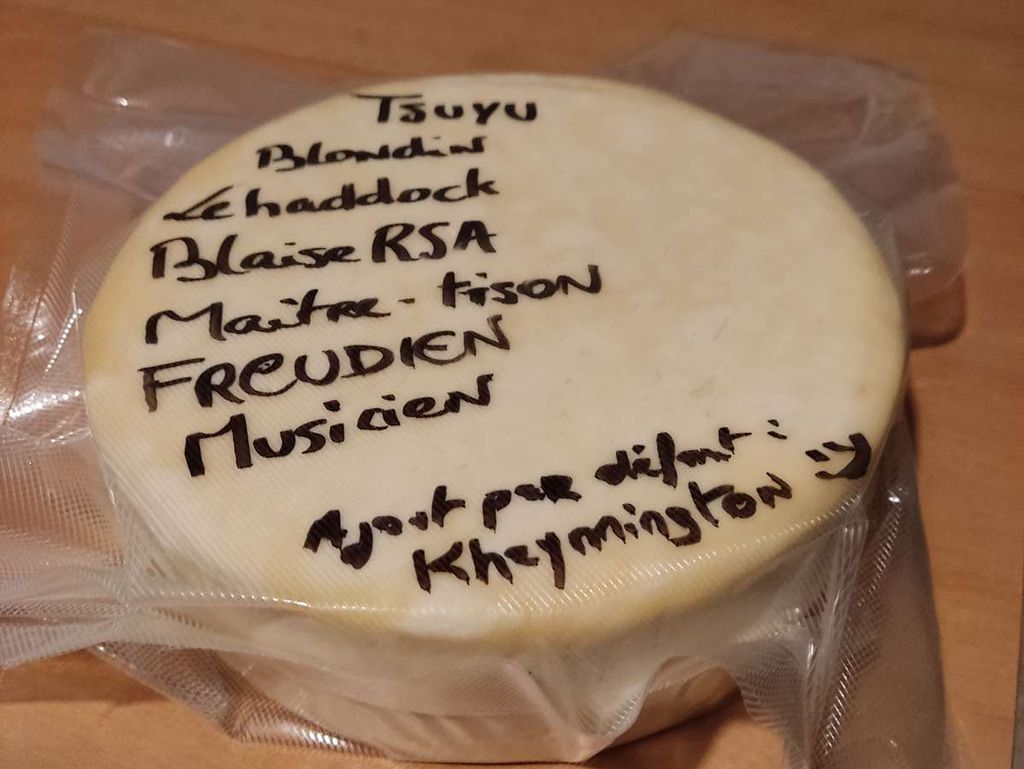 Tsuyu
Blondin
Lehaddock
Blaise RSA
Maître-tison
FREUDIEN
Musicien
Ajout par défaut :
Kheymington =)